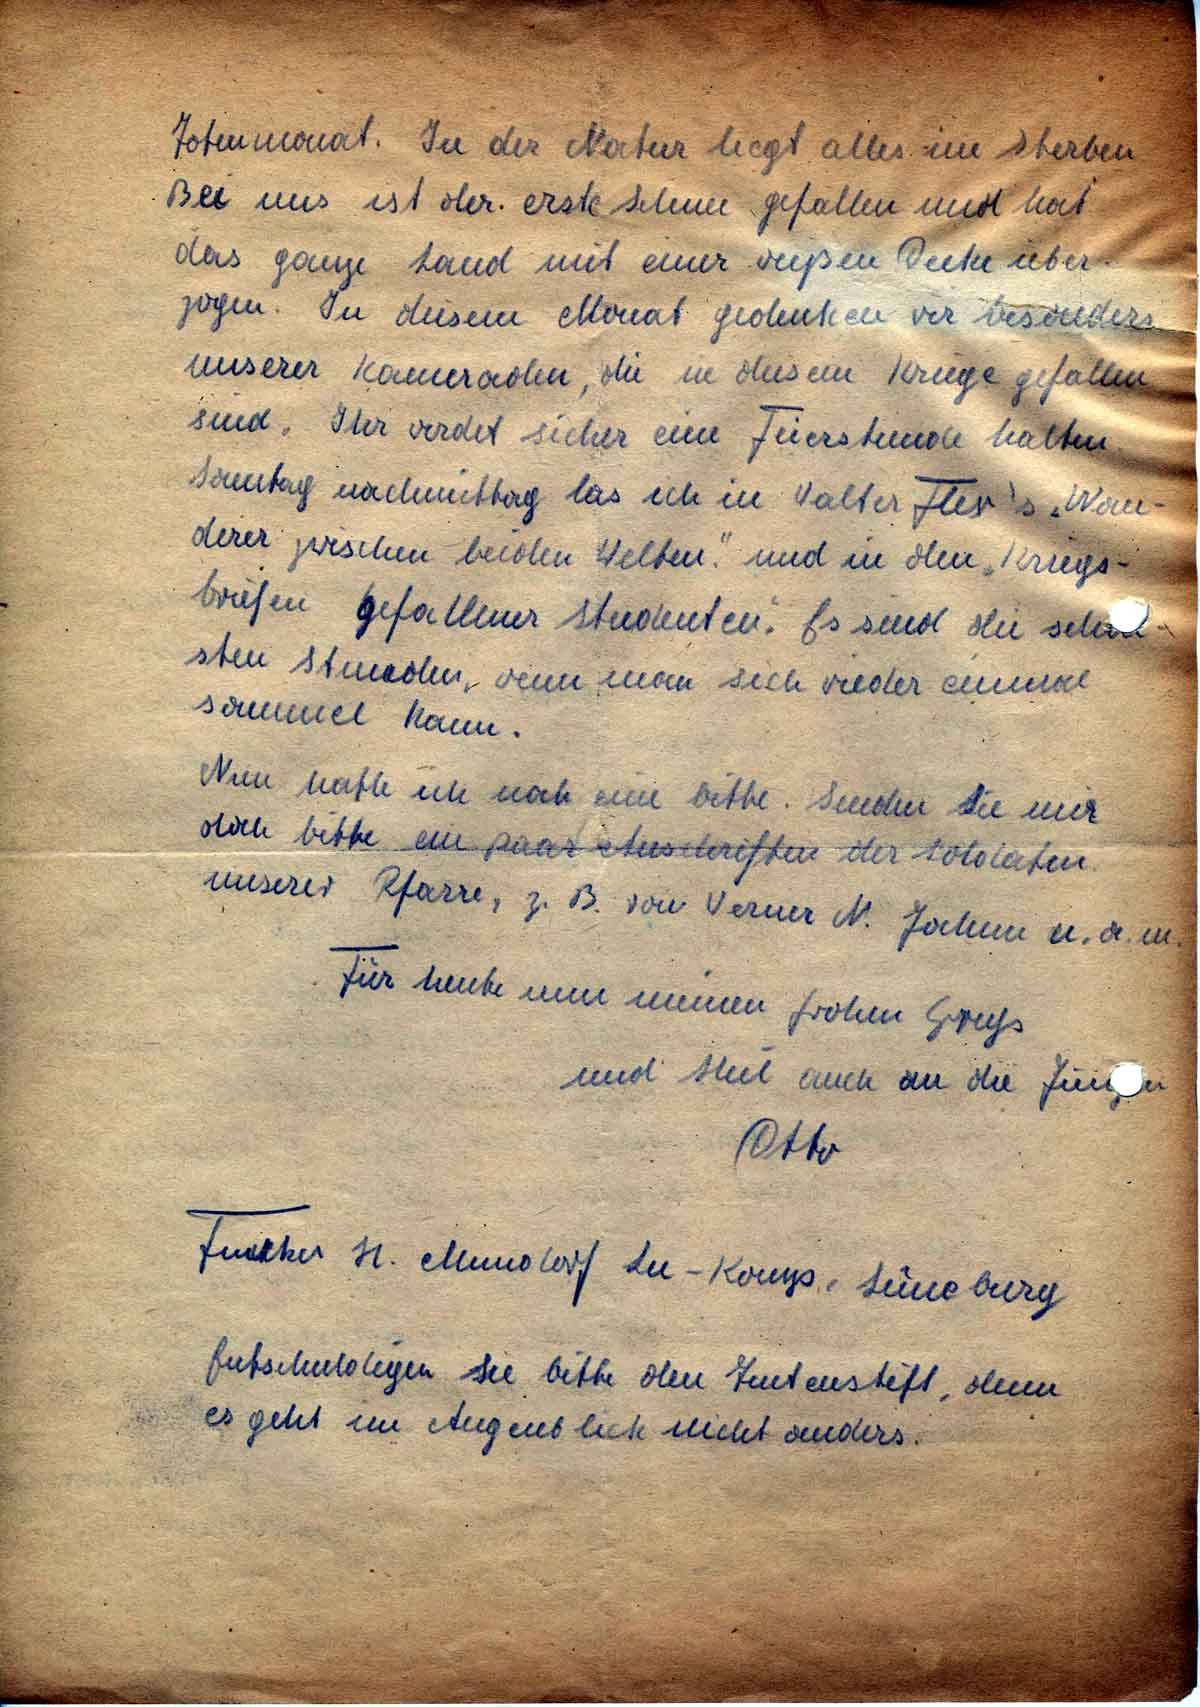 Totenmonat. In der Natur liegt alles im Sterben
Bei uns ist der erste Schnee gefallen und hat
das ganze Land mit einer weißen Decke über-
zogen. In diesem Monat gedenken wir besonders
unserer Kameraden, die in diesem Kriege gefallen
sind. Ihr werdet sicher eine Feierstunde halten.
Sonntag nachmittag las ich in Walter Flex's „Wan-
derer zwischen beiden Welten." und in den „Kriegs-
briefen gefallener Studenten." Es sind die schön-
sten Stunden, wenn man sich wieder einmal
sammel kann.
Nun hatte ich noch eine Bitte. Senden Sie mir
doch bitte ein paar Anschriften der Soldaten
unserer Pfarre, z. B. von Werner N. Jochen u. a. m.
Für heute nun meinen frohen Gruß
und Heil auch an die Jungen
Otto
Funker H. Mundorf Ln-Komp. Lüneburg
Entschuldigen Sie bitte den Tintenstift, denn
es geht im Augenblick nicht anders.